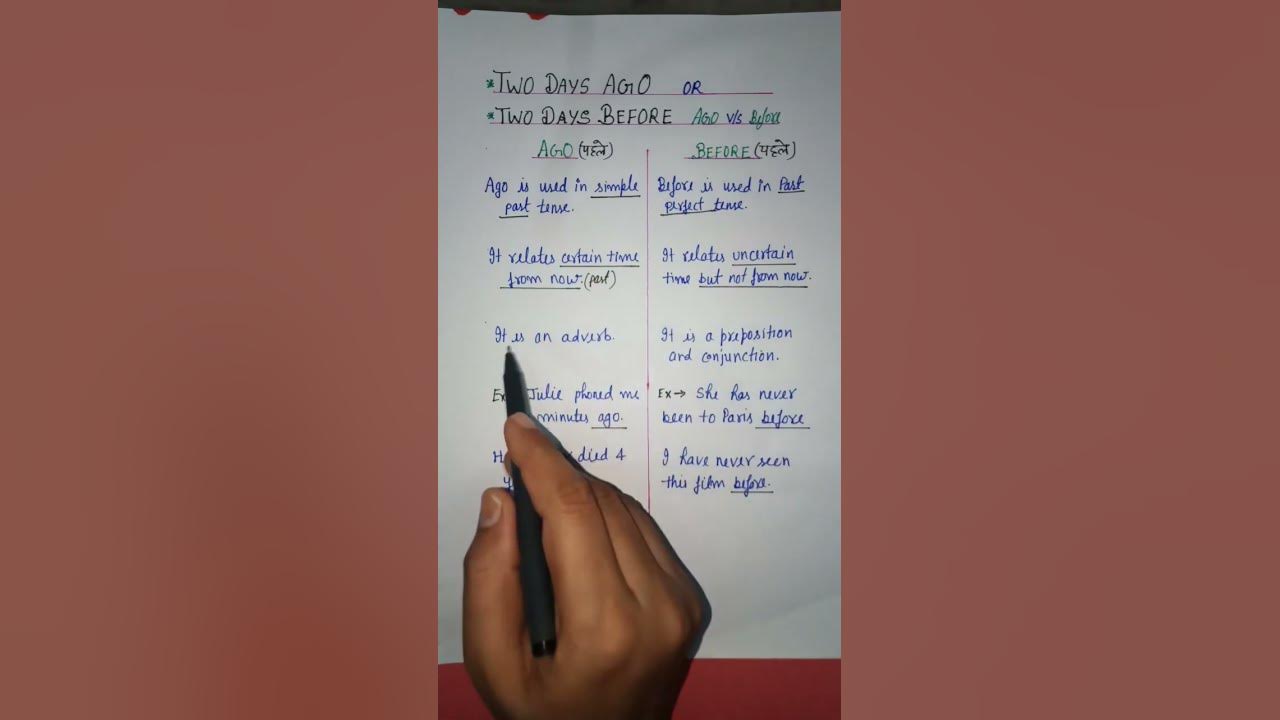 *TWO DAYS AGO OR
*TWO DAYS BEFORE AGO v/s Before
AGO (पहले)
Ago is used in simple
past tense.
It relates certain time
from now. (past)
It is an adverb.
Julie phoned me
minutes ago.
died 4
BEFORE (पहले)
Before is used in Past
perfect tense.
It relates uncertain
time but not from now.
It is a preposition
and conjunction.
Ex→ She has never
been to Paris before
I have never seen
this film before.